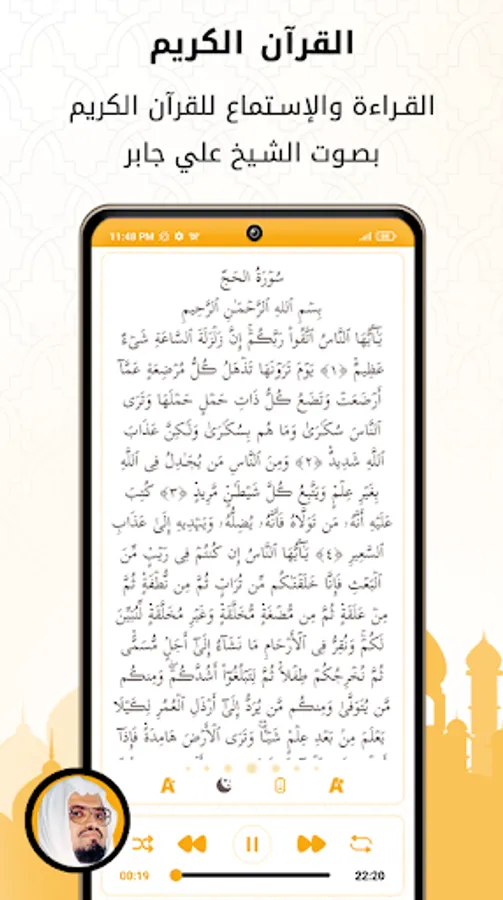 القرآن الكريم
القراءة والإستماع للقرآن الكريم
بصوت الشيخ علي جابر
11:48 PM
سُورَةُ الحَجِّ
بِسْمِ ٱللهِ ٱلرَّحْمَٰنِ ٱلرَّحِيمِ
يَٰٓأَيُّهَا ٱلنَّاسُ ٱتَّقُوا۟ رَبَّكُمْ ۚ إِنَّ زَلْزَلَةَ ٱلسَّاعَةِ شَىْءٌ
عَظِيمٌ ﴿١﴾ يَوْمَ تَرَوْنَهَا تَذْهَلُ كُلُّ مُرْضِعَةٍ عَمَّآ
أَرْضَعَتْ وَتَضَعُ كُلُّ ذَاتِ حَمْلٍ حَمْلَهَا وَتَرَى
ٱلنَّاسَ سُكَٰرَىٰ وَمَا هُم بِسُكَٰرَىٰ وَلَٰكِنَّ عَذَابَ
ٱللَّهِ شَدِيدٌ ﴿٢﴾ وَمِنَ ٱلنَّاسِ مَن يُجَٰدِلُ فِى ٱللَّهِ
بِغَيْرِ عِلْمٍ وَيَتَّبِعُ كُلَّ شَيْطَٰنٍ مَّرِيدٍ ﴿٣﴾ كُتِبَ
عَلَيْهِ أَنَّهُۥ مَن تَوَلَّاهُ فَأَنَّهُۥ يُضِلُّهُۥ وَيَهْدِيهِ إِلَىٰ عَذَابِ
ٱلسَّعِيرِ ﴿٤﴾ يَٰٓأَيُّهَا ٱلنَّاسُ إِن كُنتُمْ فِى رَيْبٍ مِّنَ
ٱلْبَعْثِ فَإِنَّا خَلَقْنَٰكُم مِّن تُرَابٍ ثُمَّ مِن نُّطْفَةٍ ثُمَّ
مِنْ عَلَقَةٍ ثُمَّ مِن مُّضْغَةٍ مُّخَلَّقَةٍ وَغَيْرِ مُخَلَّقَةٍ لِّنُبَيِّنَ
لَكُمْ ۚ وَنُقِرُّ فِى ٱلْأَرْحَامِ مَا نَشَآءُ إِلَىٰٓ أَجَلٍ مُّسَمًّى
ثُمَّ نُخْرِجُكُمْ طِفْلًا ثُمَّ لِتَبْلُغُوٓا۟ أَشُدَّكُمْ ۖ وَمِنكُم
مَّن يُتَوَفَّىٰ وَمِنكُم مَّن يُرَدُّ إِلَىٰٓ أَرْذَلِ ٱلْعُمُرِ لِكَيْلَا
يَعْلَمَ مِنۢ بَعْدِ عِلْمٍ شَيْـًٔا ۚ وَتَرَى ٱلْأَرْضَ هَامِدَةً فَإِذَآ
00:19
22:20